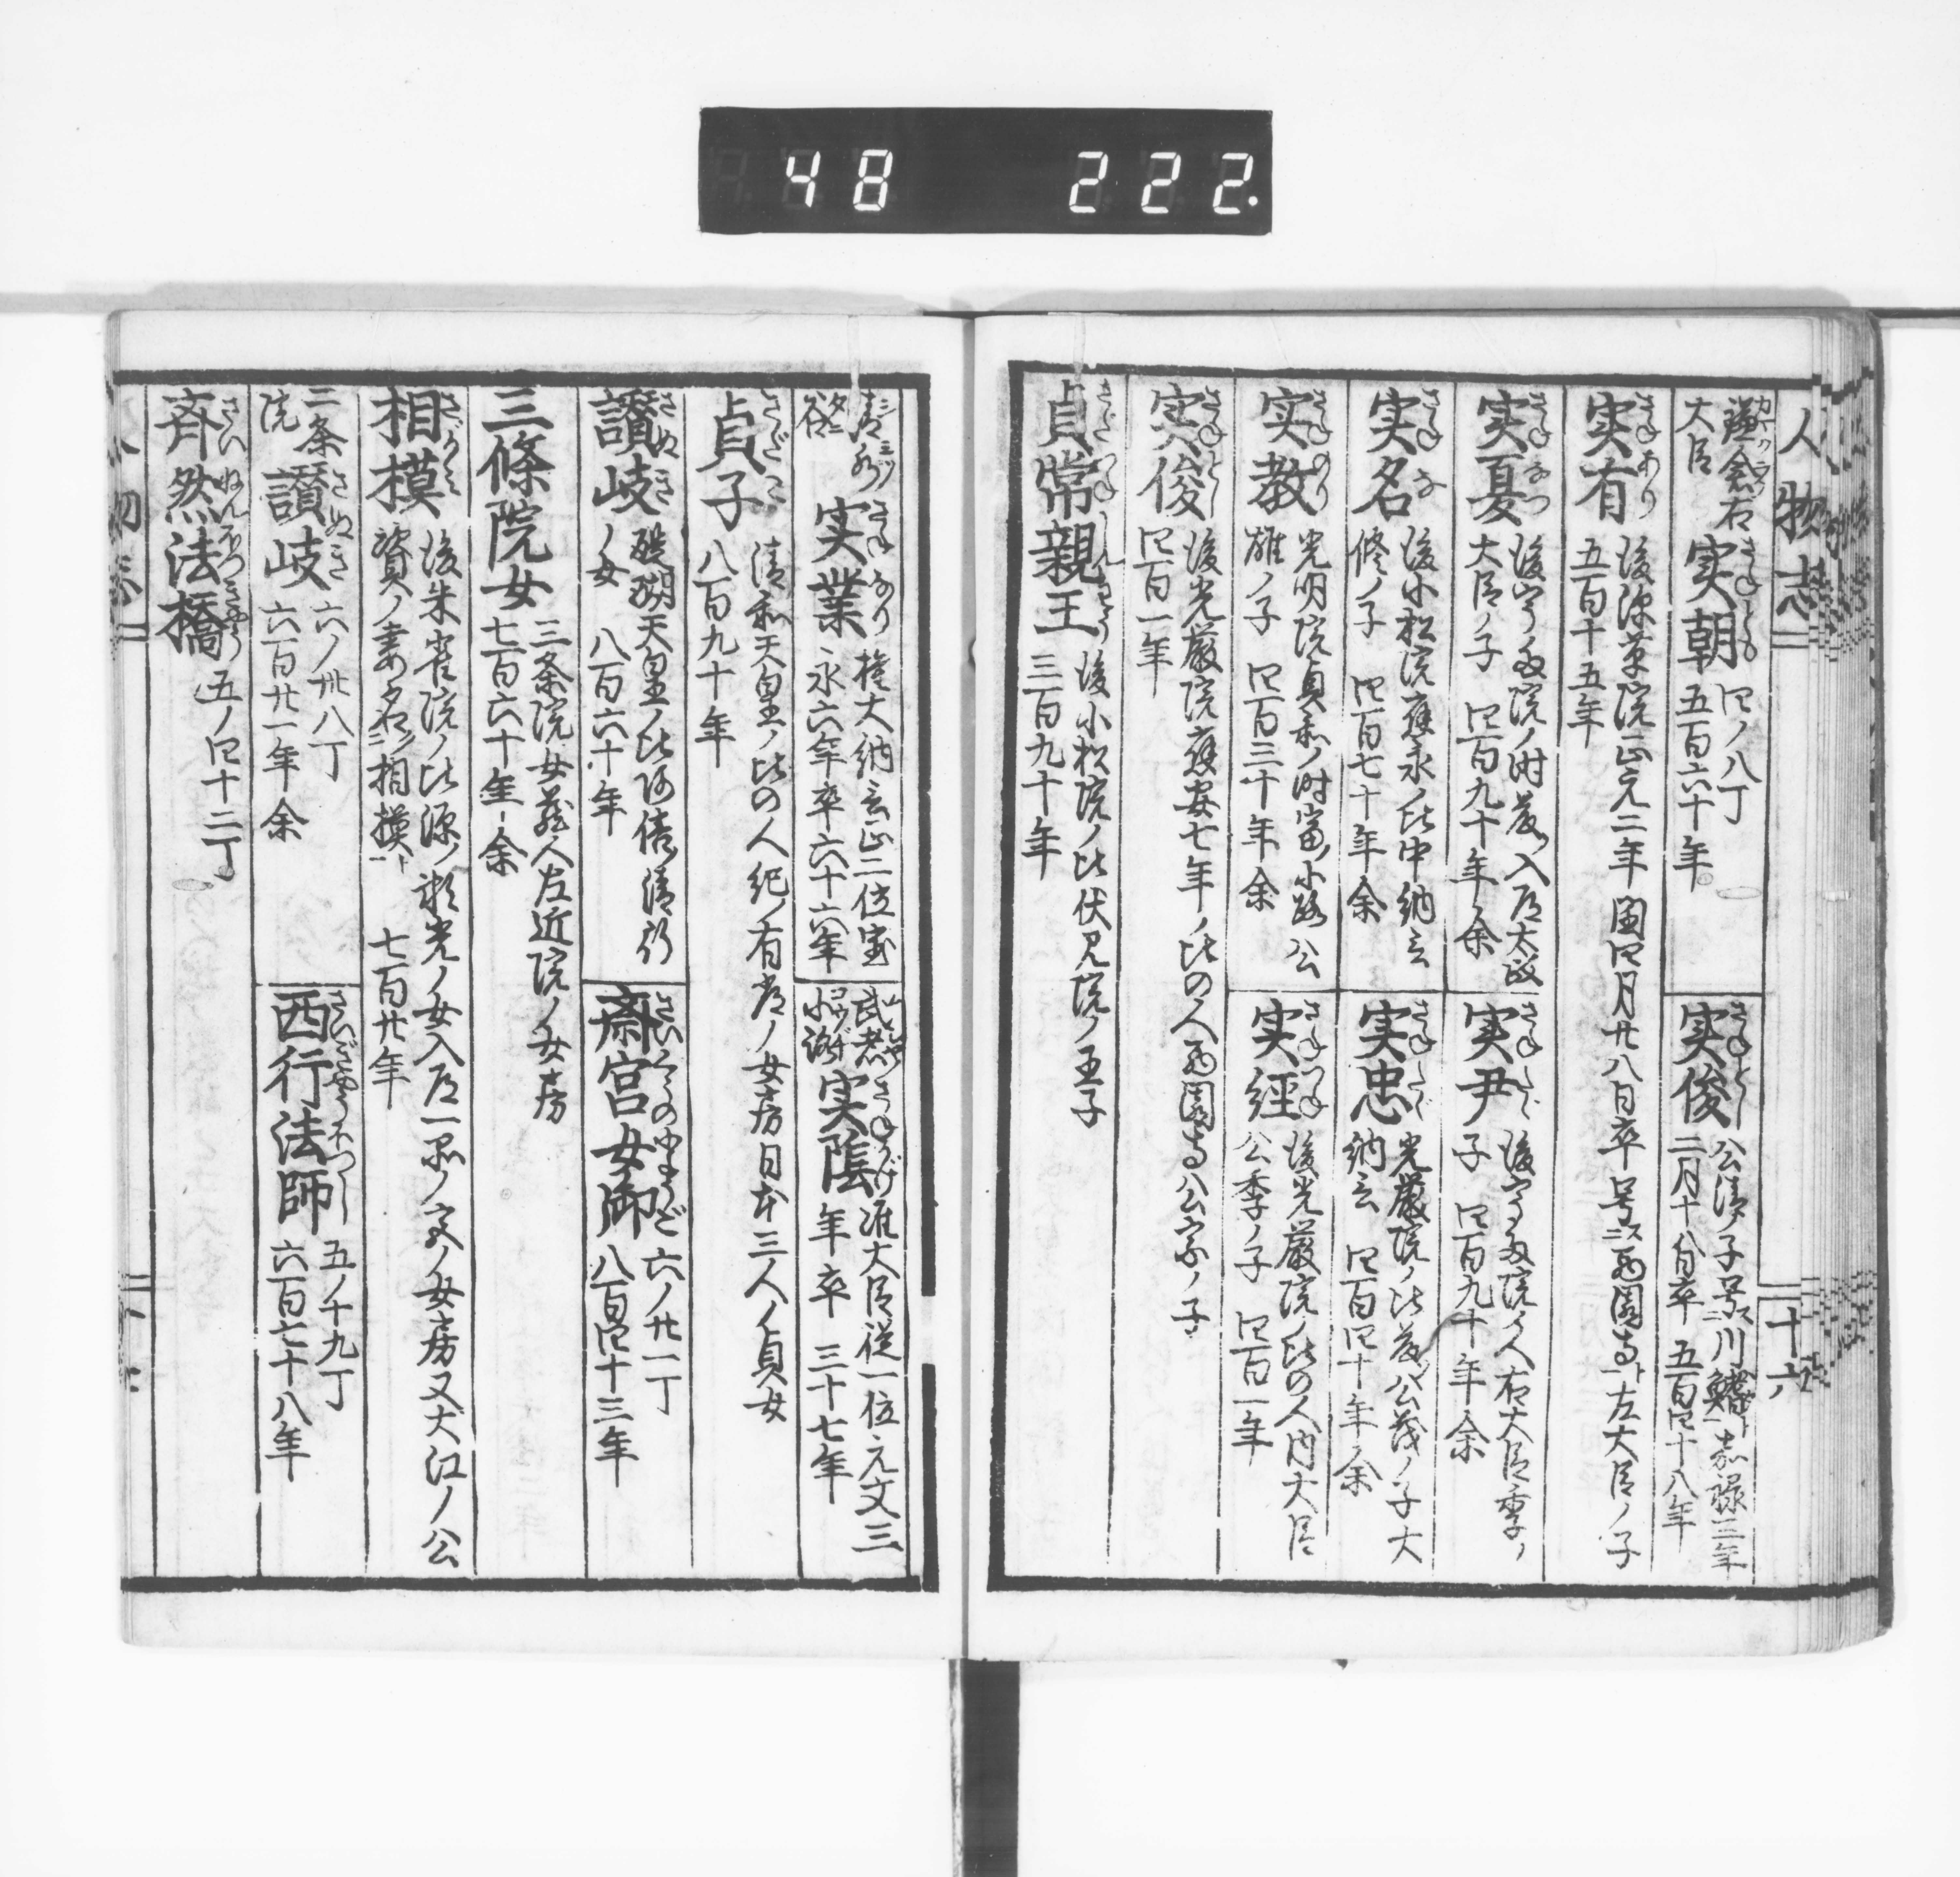 48 222.
人物志
十六
鎌倉右
大臣
実朝
四ノ八丁
五百六十年
実俊
公清ノ子号ス川鰭ト嘉禄三年
二月十八日卒 五百四十八年
実有
後深草院正元二年 閏四月廿八日卒 号ス西園寺ト左大臣ノ子
五百十五年
実夏
後宇多院ノ時ノ人入道太政
大臣ノ子 四百九十年余
実尹
後宇多院ノ人右大臣季ノ
子 四百九十年余
実名
後小松院應永ノ比中納言
修ノ子 四百七十年余
実忠
光厳院ノ比ノ人公茂ノ子大
納言 四百四十年余
実教
光明院貞和ノ時富小路公
雄ノ子 四百三十年余
実經
後光厳院ノ比の人内大臣
公季ノ子 四百一年
実俊
後光厳院應安七年ノ比の人西園寺公宗ノ子
四百一年
貞常親王
後小松院ノ比伏見院ノ王子
三百九十年
清水
谷
実業
権大納言正二位宝
永六年卒 六十六年
武者
小路
実蔭
准大臣従一位元文三
年卒 三十七年
貞子
清和天皇ノ比の人紀ノ有常ノ女房日本三人ノ貞女
八百九十年
讃岐
醍醐天皇ノ比源ノ倍清行
ノ女 八百六十年
斎宮女御
六ノ廿一丁
八百四十三年
三條院女
三条院女蔵人左近院ノ女房
七百六十年余
相模
後朱雀院ノ比源ノ頼光ノ女入道一品ノ宮ノ女房又大江ノ公
資ノ妻名ク相模ト 七百廿年
二条
院
讃岐
六ノ卅八丁
六百廿一年余
西行法師
五ノ十九丁
六百七十八年
斉然法橋
五ノ四十二丁